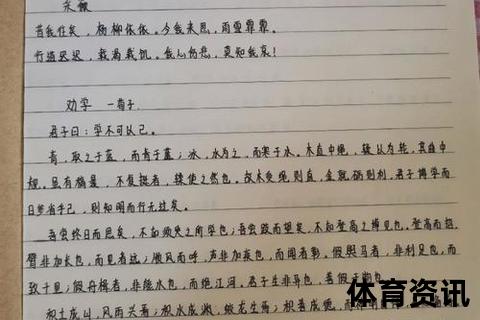 采薇
昔我往矣，杨柳依依。今我来思，雨雪霏霏。
行道迟迟，载渴载饥。我心伤悲，莫知我哀！
劝学 —荀子
君子曰：学不可以已。
青，取之于蓝，而青于蓝；冰，水为之，而寒于水。木直中绳，𫐓以为轮，其曲中
规。虽有槁暴，不复挺者，𫐓使之然也。故木受绳则直，金就砺则利，君子博学而
日参省乎己，则知明而行无过矣。
吾尝终日而思矣，不如须臾之所学也；吾尝跂而望矣，不如登高之博见也。登高而招，
臂非加长也，而见者远；顺风而呼，声非加疾也，而闻者彰。假舆马者，非利足也，而
致千里；假舟楫者，非能水也，而绝江河。君子生非异也，善假于物也。
积土成山，风雨兴焉；积水成渊，蛟龙生焉；积善成德，而
体育资讯